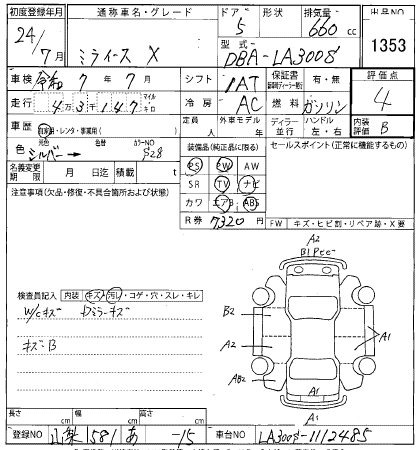 初度登録年月 通称車名・グレード ドア 形状 排気量 出品NO
24/7月 ミライース X 5 660cc 1353
型式 DBA-LA300S
車検 令和 7年 7月 シフト IAT 保証書 有・無 評価点
走行 4万3千147 マイル キロ 冷房 AC 燃料 ガソリン 4
車歴 自家用・レンタ・事業用( ) 定員 人 外車モデル 年 ディーラー 並行 ハンドル 左・右 内装評価 B
色 元色 シルバー→ 色替 カラーNO S28
装備品(純正品に限る) セールスポイント(正常に機能するもの)
名義変更期限 月 日迄 積載 t
PS PW AW
SR TV ナビ
カワ エアB ABS
注意事項(欠品・修復・不具合箇所および状態)
R券 7320円 FW キズ・ヒビ割・リペア跡・X要
A2
B1Pセー
検査員記入 内装 キズ・汚レ・コゲ・穴・スレ・キレ
W/Cキズ Dミラーキズ
キズ:B
B2
A2
AB2
A1
A1
A1
長さ cm 幅 cm 高さ cm
登録NO 山梨 581 あ -15 車台NO LA300S-1112485